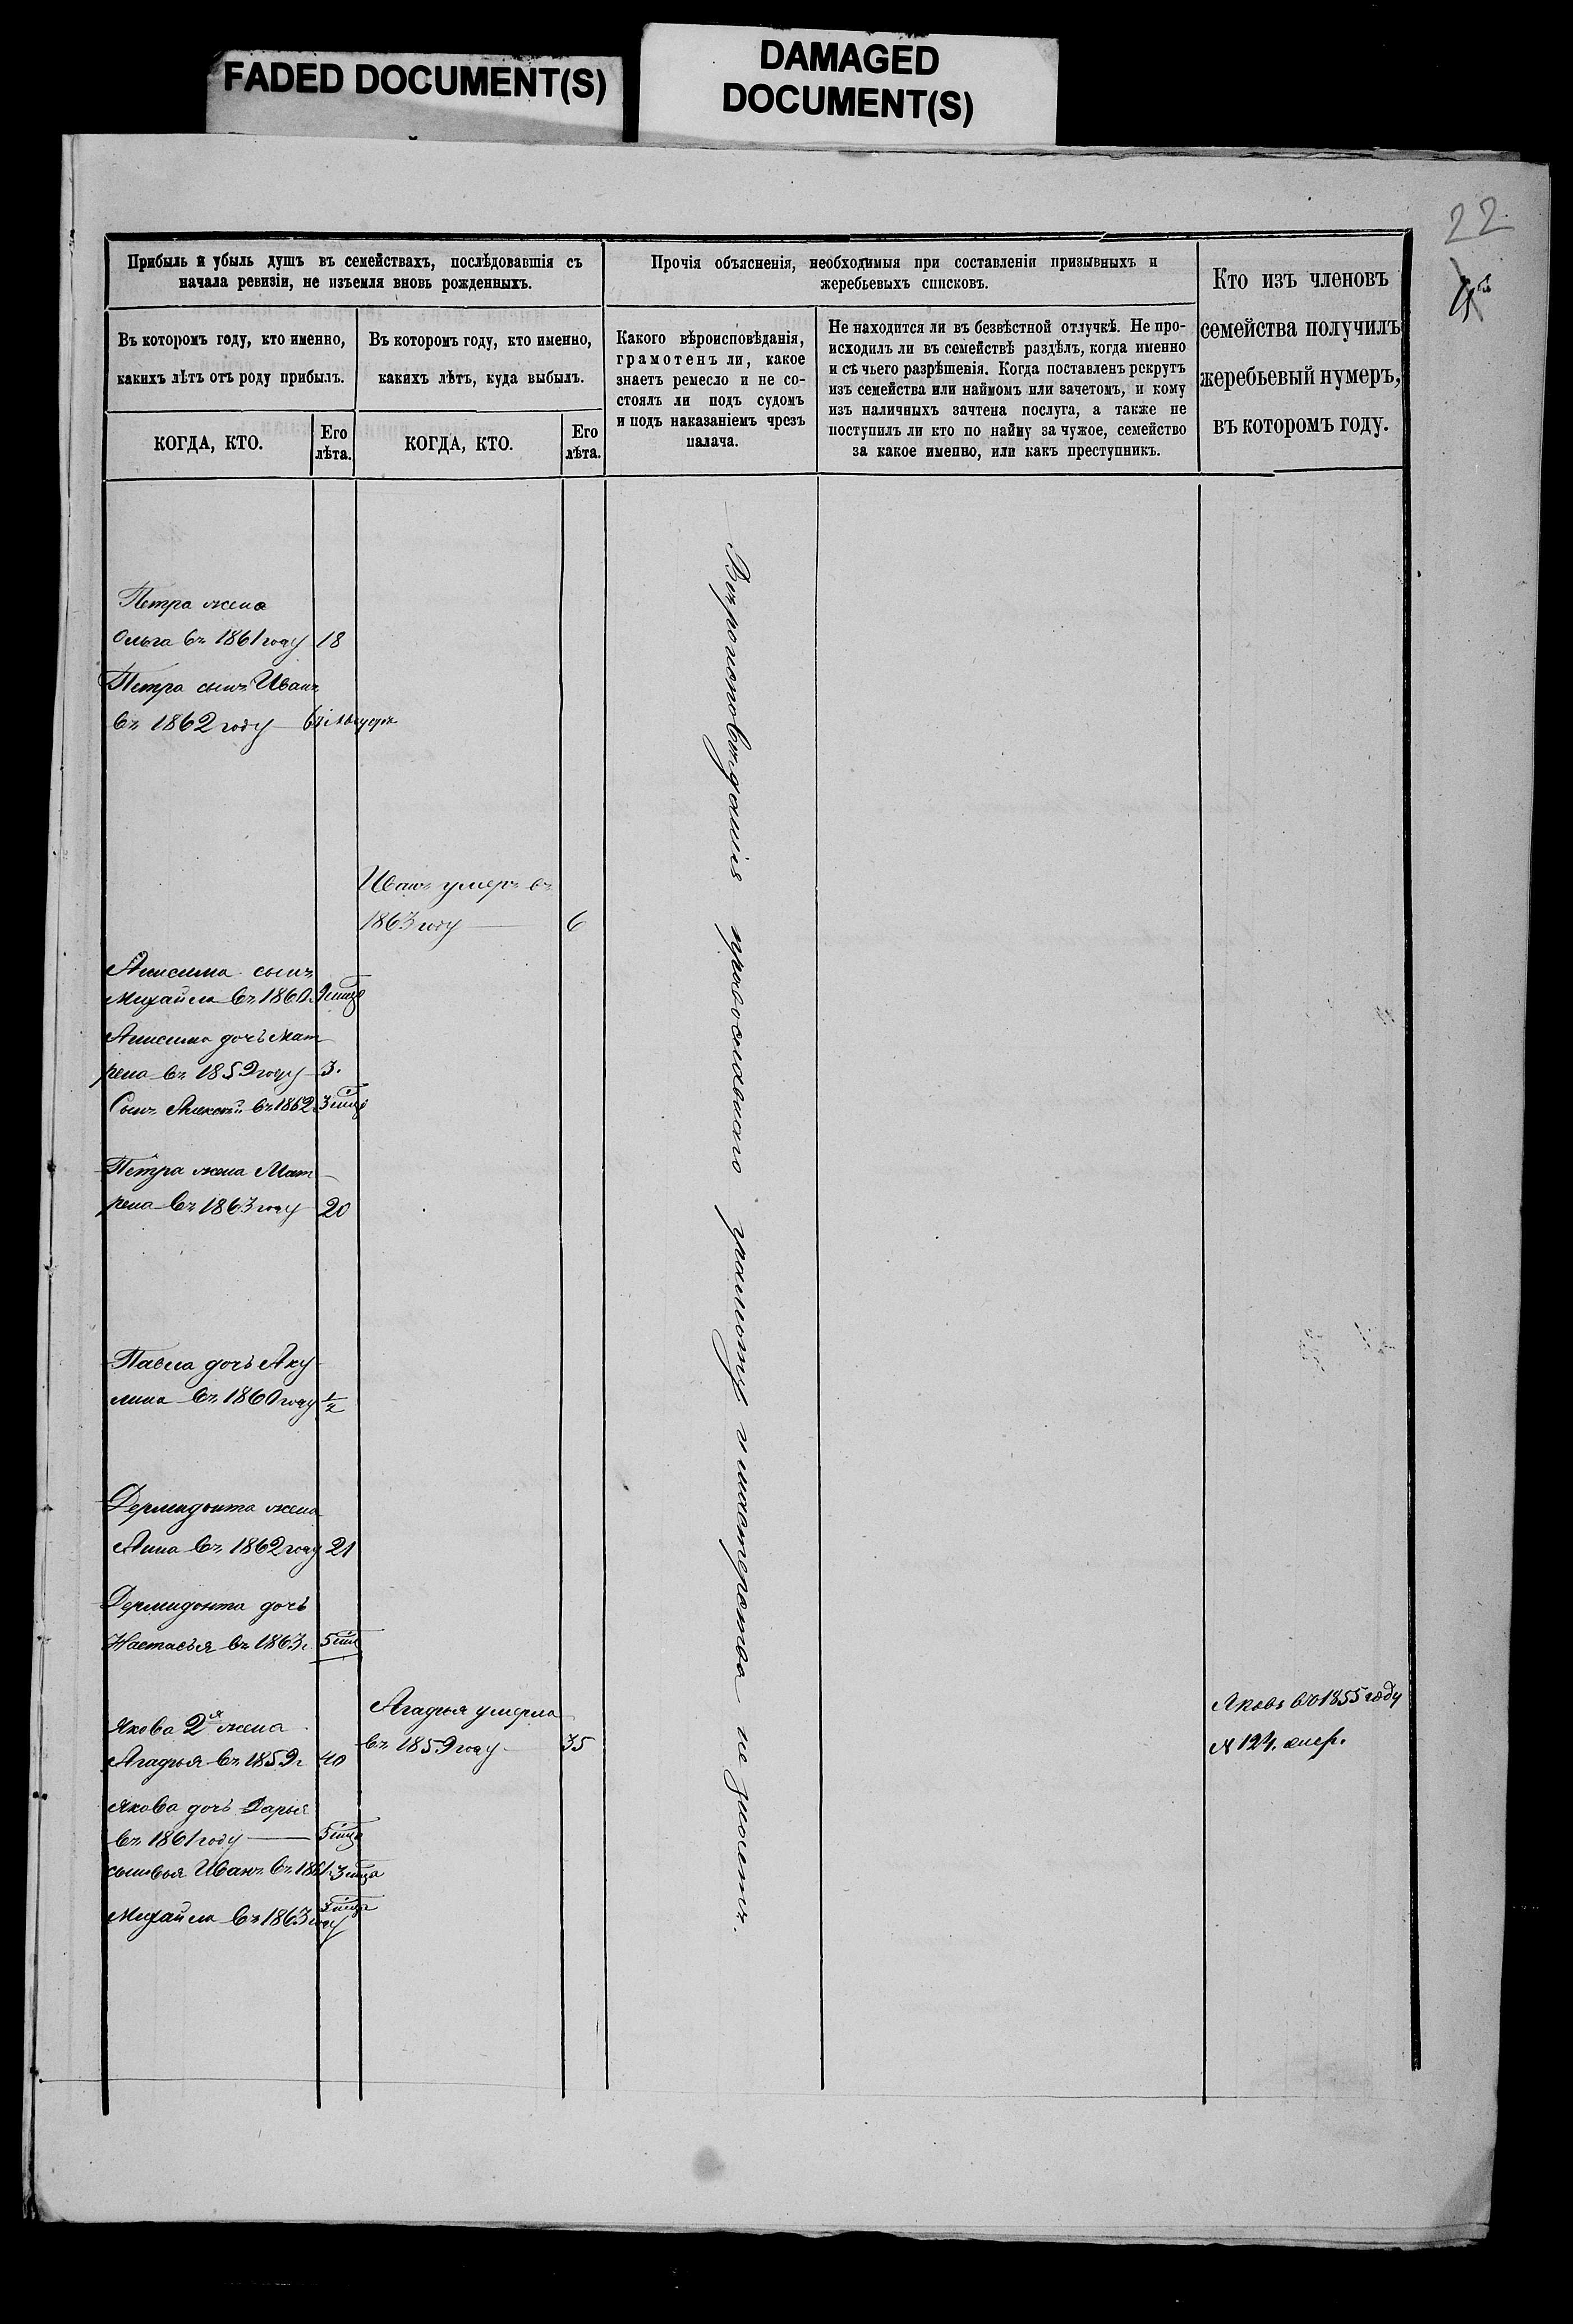 FADED DOCUMENT(S)
DAMAGED
DOCUMENT(S)
22
Прибыль и убыль душъ въ семействахъ, послѣдовавшія съ
начала ревизіи, не изъемля вновь рожденныхъ.
Въ которомъ году, кто именно,
какихъ лѣтъ отъ роду прибылъ.
КОГДА, КТО.
Его
лѣта.
Въ которомъ году, кто именно,
какихъ лѣтъ, куда выбылъ.
КОГДА, КТО.
Его
лѣта.
Прочія объясненія, необходимыя при составленіи призывныхъ и
жеребьевыхъ списковъ.
Какого вѣроисповѣданія,
грамотенъ ли, какое
знаетъ ремесло и не со-
стоялъ ли подъ судомъ
и подъ наказаніемъ чрезъ
палача.
Не находится ли въ безвѣстной отлучкѣ. Не про-
исходилъ ли въ семействѣ раздѣлъ, когда именно
и съ чьего разрѣшенія. Когда поставленъ рекрутъ
изъ семейства или наймомъ или зачетомъ, и кому
изъ наличныхъ зачтена послуга, а также не
поступилъ ли кто по найму за чужое, семейство
за какое именно, или какъ преступникъ.
Кто изъ членовъ
семейства получилъ
жеребьевый нумеръ,
въ которомъ году.
Петра жена
Ольга въ 1861 году 18
Петра сынъ Иванъ
въ 1862 году
Иванъ умеръ въ
1863 году 6
Анисима сынъ
Михайла въ 1860
Анисима дочь Мат
рена въ 1859 году 3.
Сынъ Алексѣй въ 1862
Петра жена Мат
рена въ 1863 году 20
Павла дочь Аку
лина въ 1860 году 1/2
Дермидонта жена
Анна въ 1862 году 21
Дермидонта дочь
Настасья въ 1863 г.
Якова 2я жена
Агафья въ 1859 г 40
Агафья умерла
въ 1859 году 35
Якова дочь Дарья
въ 1861 году
сыновья Иванъ въ 1861
Михайла въ 1863 году
Вѣроисповѣданія православнаго грамоту и мастерства не знаютъ.
Яковъ въ 1855 году
№ 124.